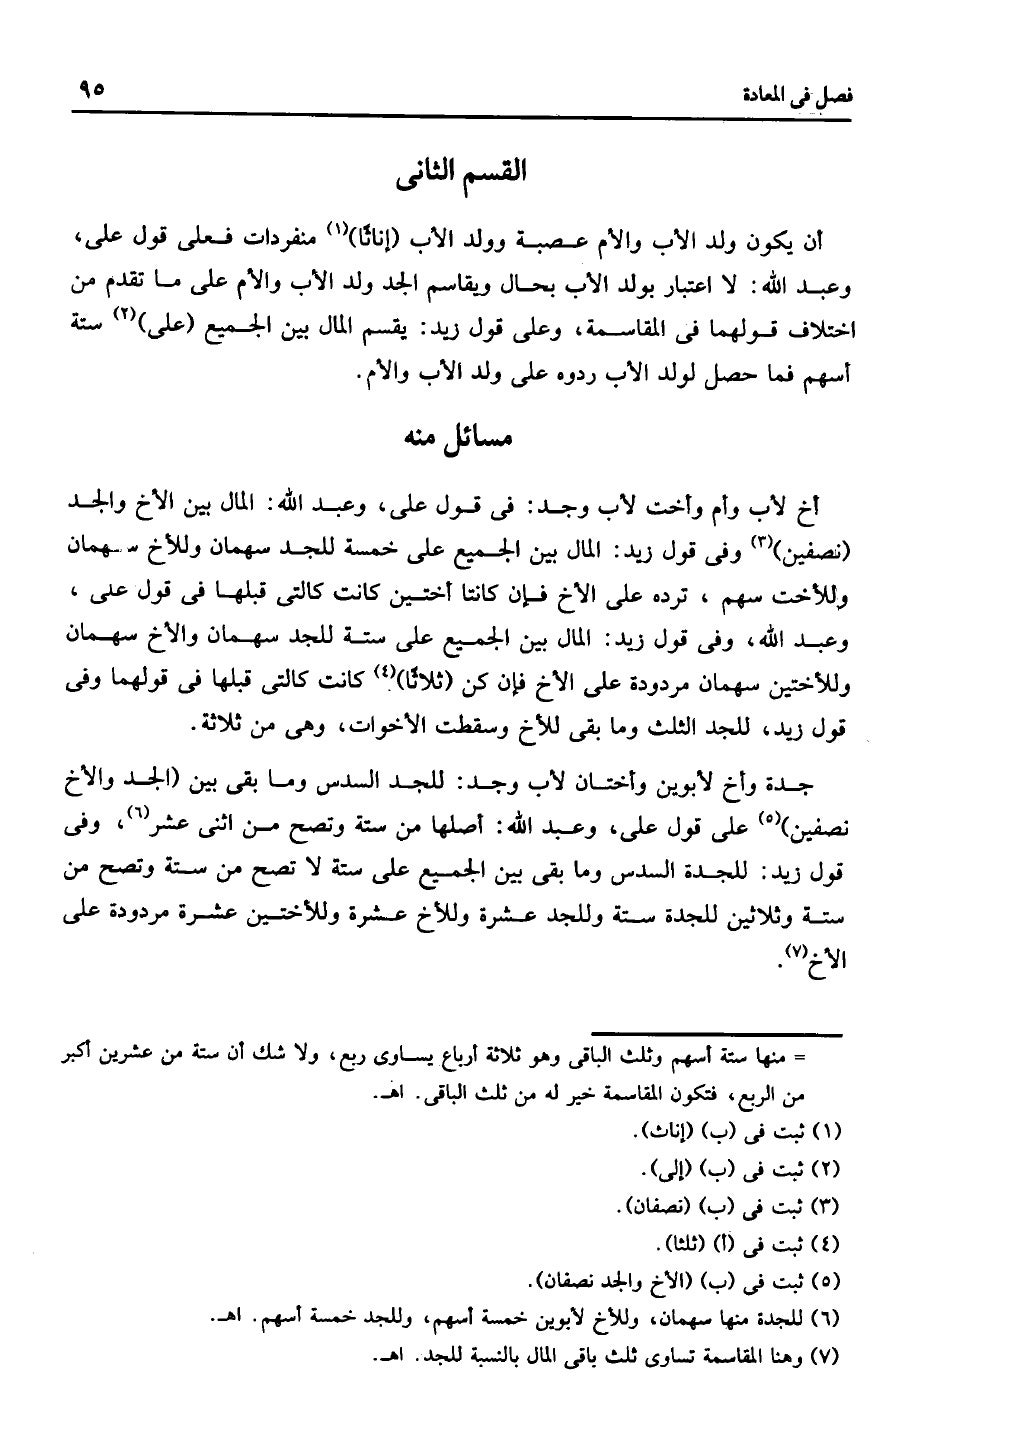 فصل فى المعادة
٩٥
القسم الثانى
أن يكون ولد الأب والأم عصبة وولد الأب (إناثًا)(١) منفردات فعلى قول على،
وعبد الله: لا اعتبار بولد الأب بحال ويقاسم الجد ولد الأب والأم على ما تقدم من
اختلاف قولهما فى المقاسمة، وعلى قول زيد: يقسم المال بين الجميع (على)(٢) ستة
أسهم فما حصل لولد الأب ردوه على ولد الأب والأم.
مسائل منه
أخ لأب وأم وأخت لأب وجد: فى قول على، وعبد الله: المال بين الأخ والجد
(نصفين)(٣) وفى قول زيد: المال بين الجميع على خمسة للجد سهمان وللأخ سهمان
وللأخت سهم ، ترده على الأخ فإن كانتا أختين كانت كالتى قبلها فى قول على ،
وعبد الله، وفى قول زيد: المال بين الجميع على ستة للجد سهمان والأخ سهمان
وللأختين سهمان مردودة على الأخ فإن كن (ثلاثًا)(٤) كانت كالتى قبلها فى قولهما وفى
قول زيد، للجد الثلث وما بقى للأخ وسقطت الأخوات، وهى من ثلاثة.
جدة وأخ لأبوين وأختان لأب وجد: للجد السدس وما بقى بين (الجد والأخ
نصفين)(٥) على قول على، وعبد الله: أصلها من ستة وتصح من اثنى عشر(٦)، وفى
قول زيد: للجدة السدس وما بقى بين الجميع على ستة لا تصح من ستة وتصح من
ستة وثلاثين للجدة ستة وللجد عشرة وللأخ عشرة وللأختين عشرة مردودة على
الأخ(٧).
= منها ستة أسهم وثلث الباقى وهو ثلاثة أرباع يساوى ربع، ولا شك أن ستة من عشرين أكبر
من الربع، فتكون المقاسمة خير له من ثلث الباقى. اهـ.
(١) ثبت فى (ب) (إناث).
(٢) ثبت فى (ب) (إلى).
(٣) ثبت فى (ب) (نصفان).
(٤) ثبت فى (أ) (ثلثا).
(٥) ثبت فى (ب) (الأخ والجد نصفان).
(٦) للجدة منها سهمان، وللأخ لأبوين خمسة أسهم، وللجد خمسة أسهم. اهـ.
(٧) وهنا المقاسمة تساوى ثلث باقى المال بالنسبة للجد. اهـ.